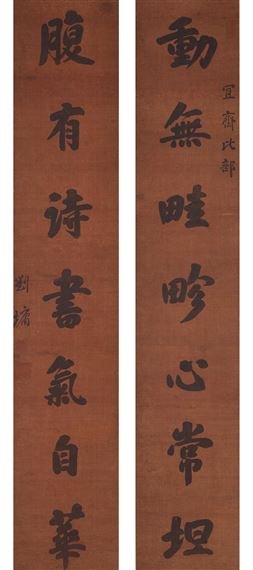 宜齋比部
動無畦畛心常坦
腹有诗書氣自華
劉墉